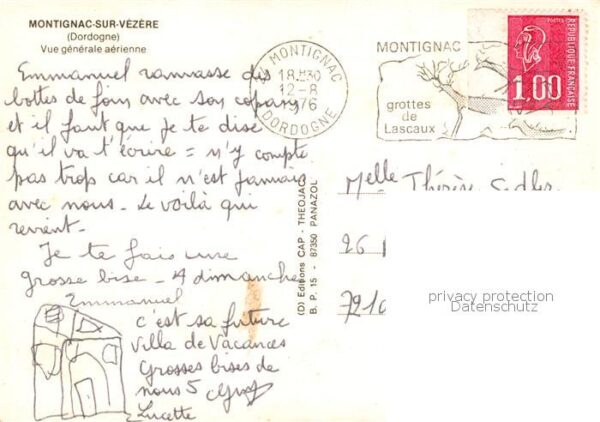 MONTIGNAC-SUR-VÉZÈRE
(Dordogne)
Vue générale aérienne
Emmanuel rammasse des
bottes de foin avec son copain
et il faut que je te dise
qu'il va t'écrire = n'y compte
pas trop car il n'est jamais
avec nous - Le voilà qui
revient -
Je te fais une
grosse bise - A dimanche
Emmanuel
c'est sa future
Villa de Vacances
Grosses bises de
nous 5
Lucette
(D) Editions CAP - THEOJAC
B. P. 15 - 87350 PANAZOL
24 MONTIGNAC
18 H 30
12-8
1976
DORDOGNE
MONTIGNAC
grottes
de
Lascaux
POSTES
1,00
REPUBLIQUE FRANÇAISE
Melle Thérèse
26
privacy protection
Datenschutz